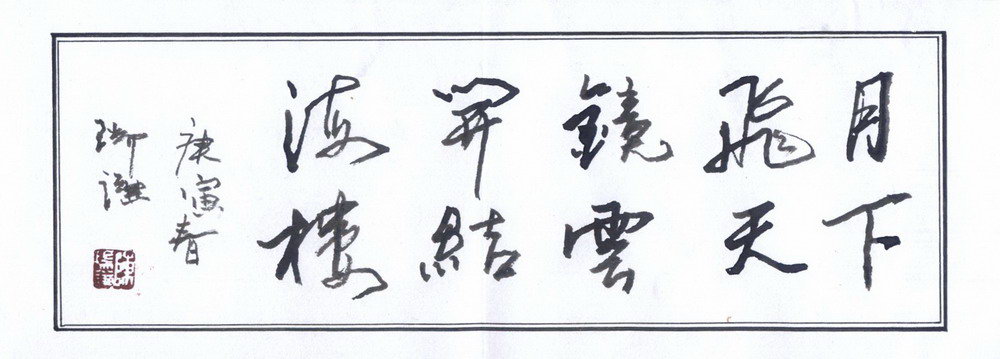 月下
飛天
鏡雲
開結
海樓
庚寅春